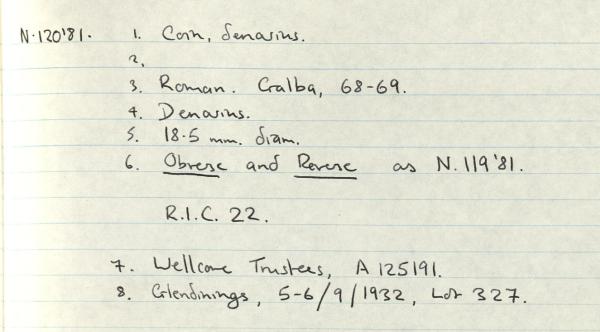 N.120'81. 1. Coin, denarius.
2.
3. Roman. Galba, 68-69.
4. Denarius.
5. 18.5 mm. diam.
6. Obverse and Reverse as N.119'81.
R.I.C. 22.
7. Wellcome Trustees, A 125191.
8. Glendinings, 5-6/9/1932, Lot 327.